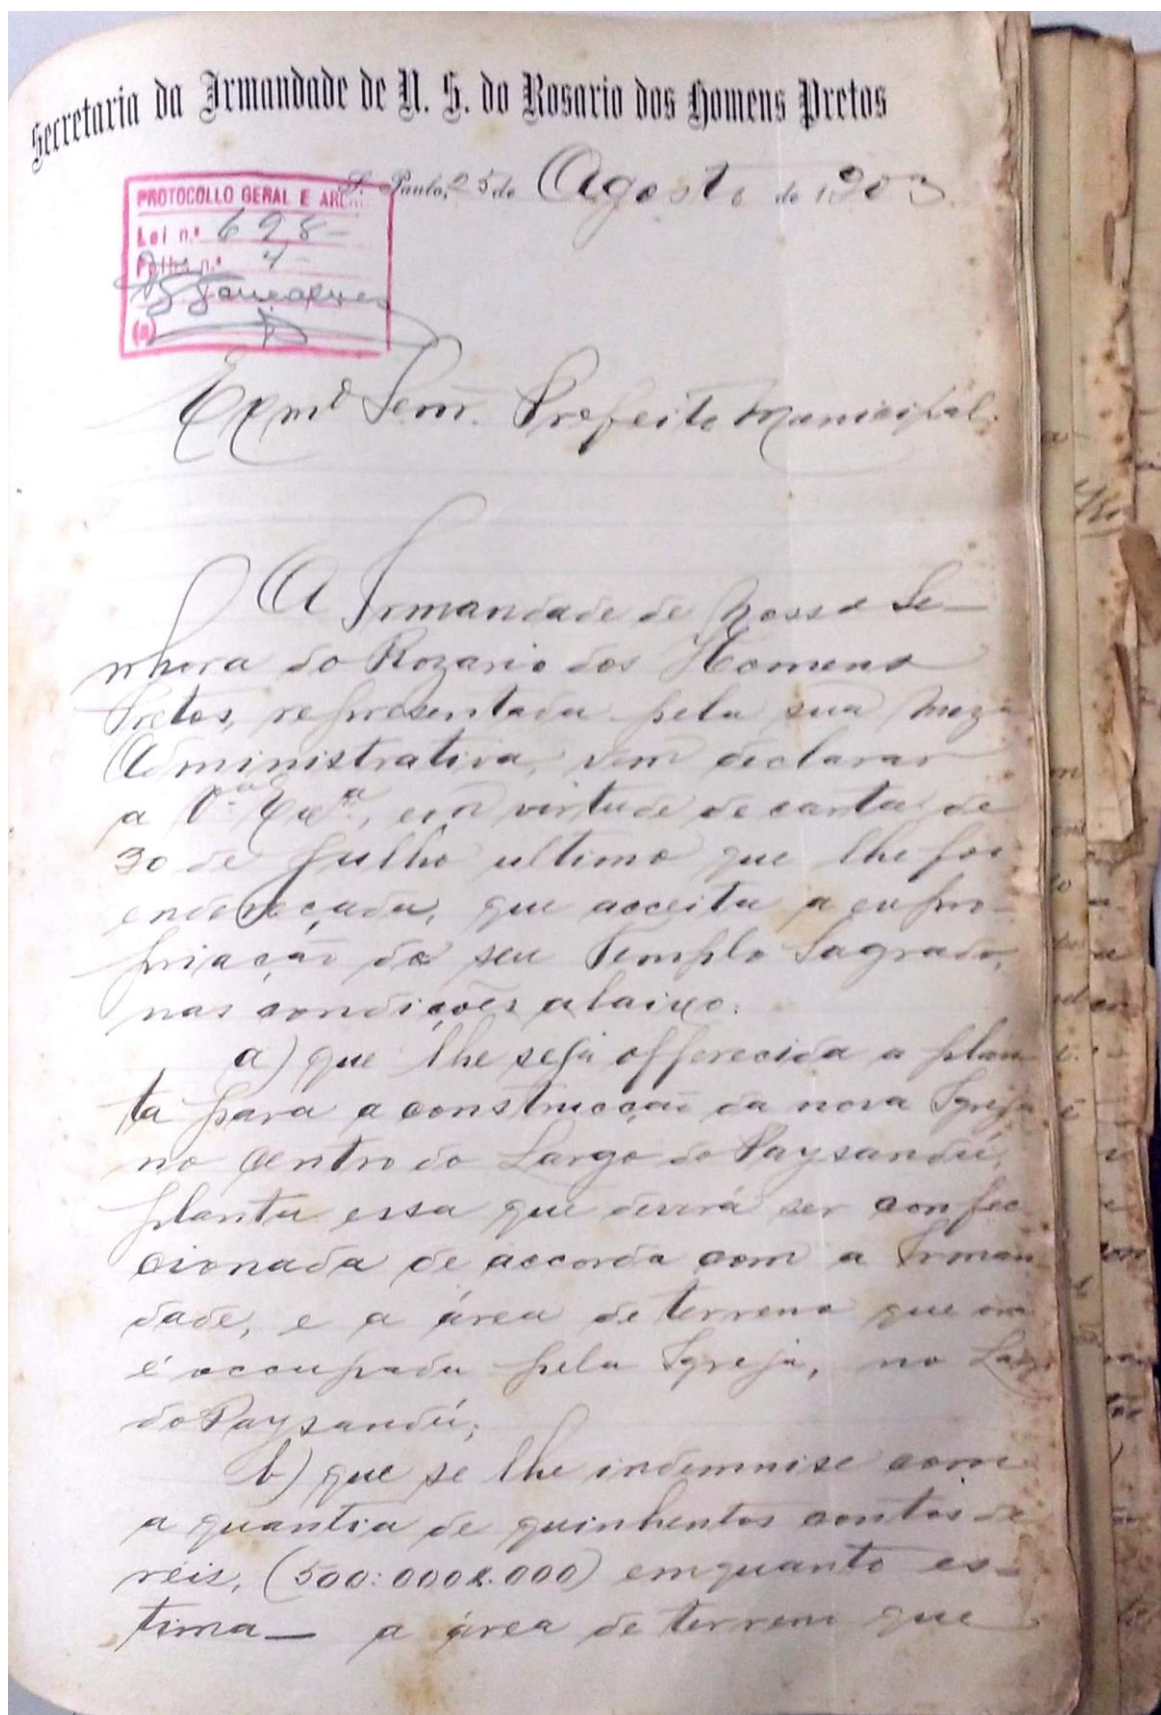 Secretaria da Irmandade de N. S. do Rosario dos Homens Pretos
S. Paulo, 25 de Agosto de 1903
PROTOCOLLO GERAL E ARC...
Lei n.º 698
Folha n.º 4
Gonçalves
(a)
Exmº Senr. Prefeito Municipal.
A Irmandade de Nossa Se-
nhora do Rozario dos Homens
Pretos, representada pela sua Meza
Administrativa, vem declarar
a V.ª Exª, em virtude de carta de
30 de Julho ultimo que lhe foi
endereçada, que acceita a expro-
priação do seu Templo Sagrado,
nas condições abaixo:
a) que lhe seja offerecida a plan-
ta para a construcção da nova Igreja
no centro do Largo do Paysandú,
planta essa que deverá ser confec-
cionada de accordo com a Irman-
dade, e a área de terreno que ora
é occupada pela Igreja, no Largo
do Paysandú;
b) que se lhe indemnise com
a quantia de quinhentos contos de
réis, (500:000$000) emquanto es-
tima — a área de terreno que